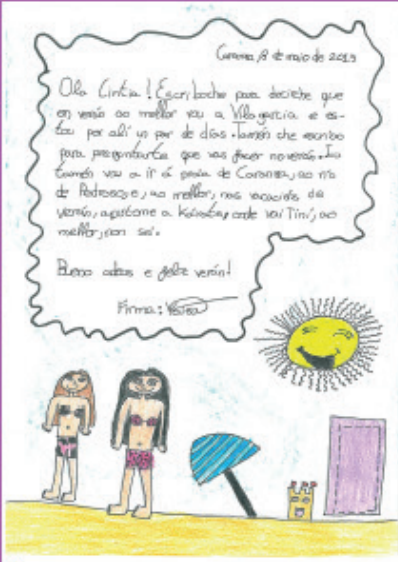 Caranza, 8 de maio de 2019
Ola Cintia! Escríboche para decirche que
en verán ao mellor vou a Vilagarcía e es-
tou por alí un par de días. Tamén che escribo
para preguntarche que vas facer no verán. Eu
tamén vou a ir á praia de Caranza, ao río
de Pedroso e, ao mellor, nas vacacións de
verán, apúntome a onde vai Tini, ao
mellor, non sei.
Bueno adeus e feliz verán!
Firma: